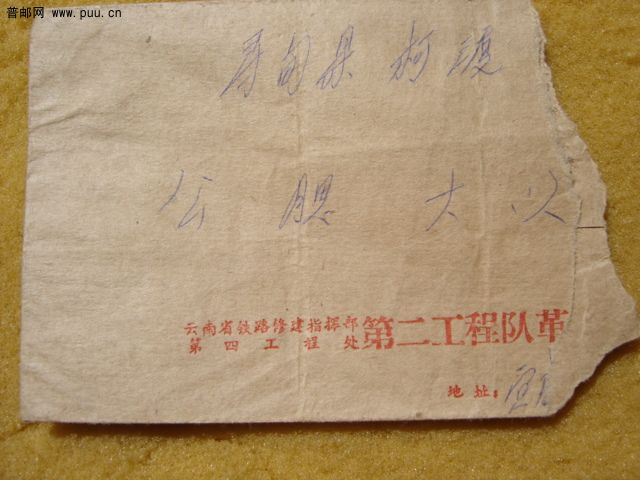 普邮网 www.puu.cn
寻甸县 柯渡
公 腮 大
云南省铁路修建指挥部
第四工程处
第二工程队革
地址：